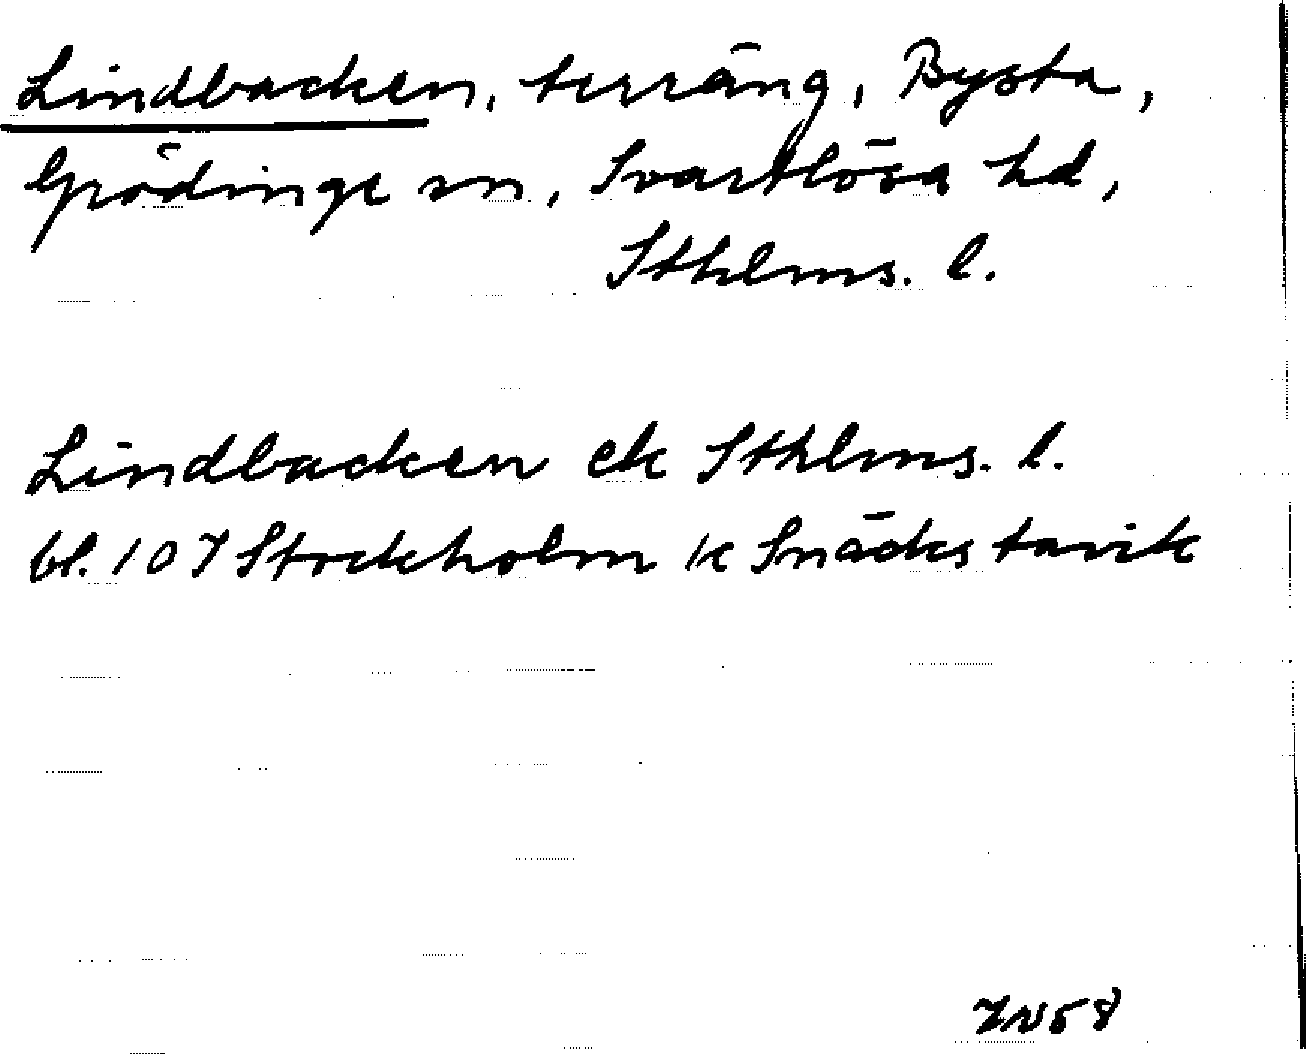 Lindbacken, terräng, Bysta,
Grödinge sn, Svartlösa hd,
Sthlms. l.
Lindbacken ek Sthlms. l.
bl. 107 Stockholm k Snäckstavik